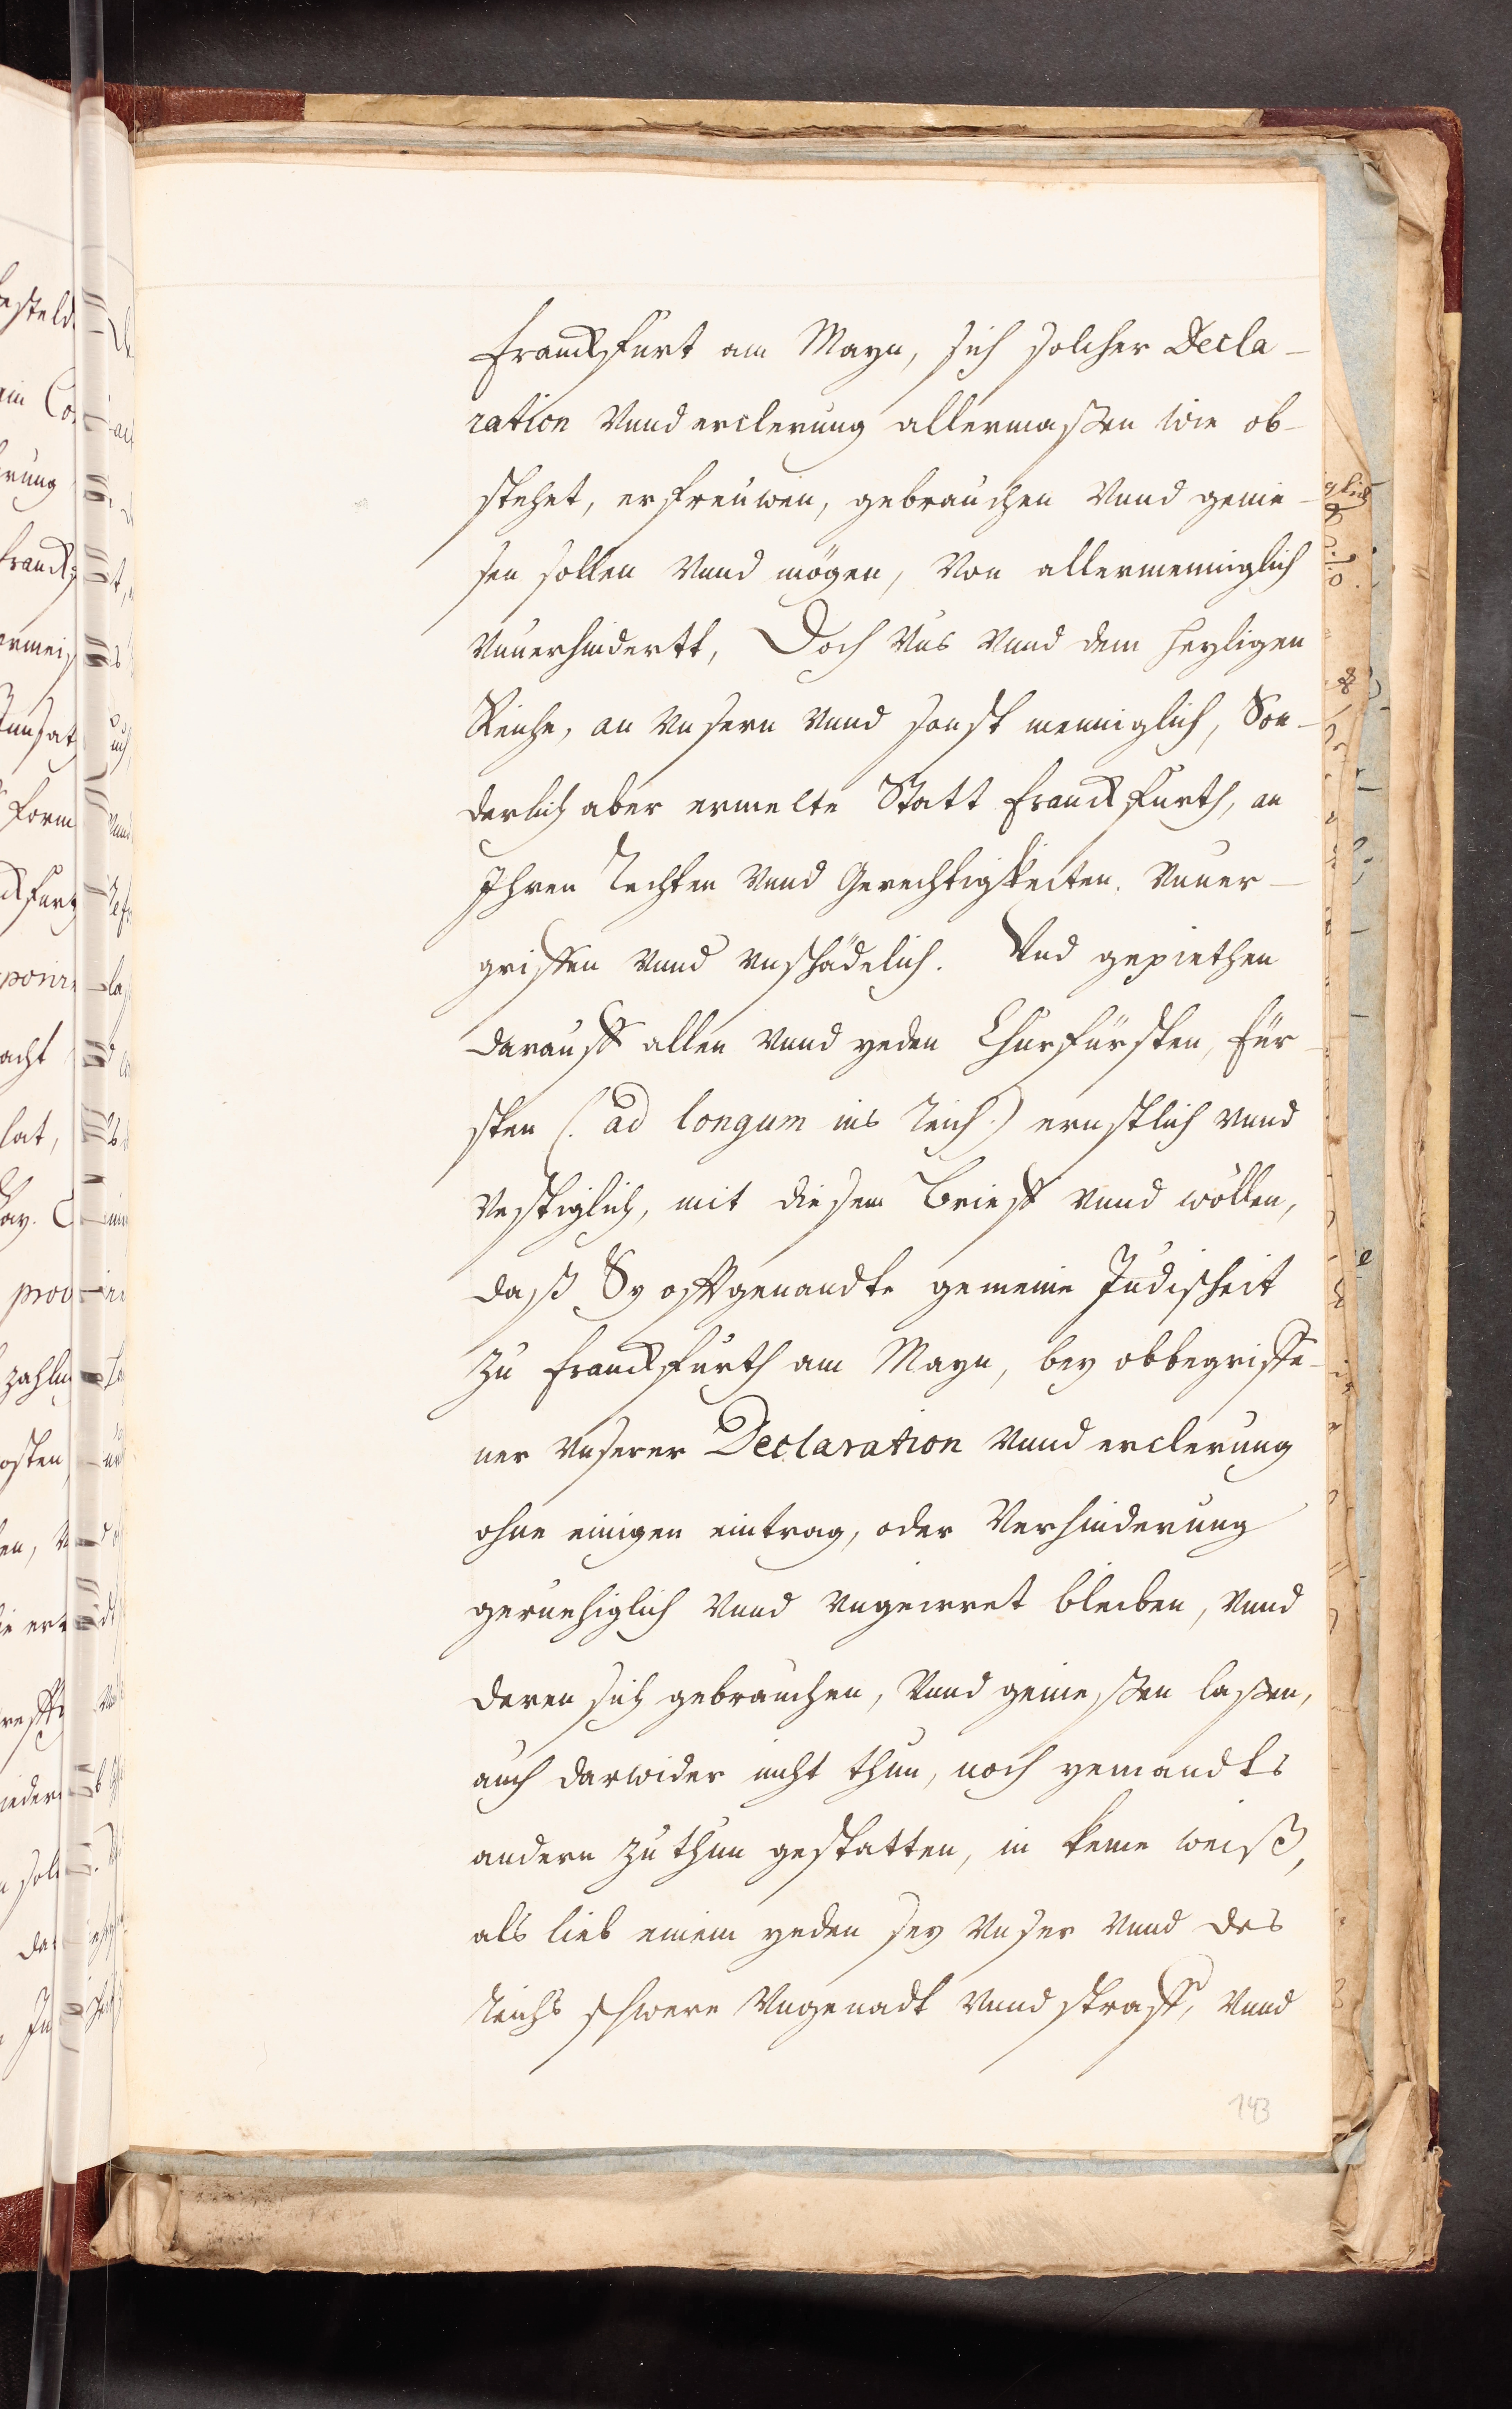 Franckfurt am Mayn, sich solcher Decla-
ration Vnnd erclerung allermaßen wie ob-
stehet, erfreuwen, gebrauchen Vnnd genie-
sen sollen Vnnd mögen, Von allermenniglich
Vnuerhindertt, Doch Vns Vnnd dem heyligen
Reiche, an Vnsern Vnnd sonst menniglich, Son-
derlich aber ermelte Statt Franckfurth, an
Ihren Rechten Vnnd Gerechtigkeiten, Vnuer-
griffen Vnnd vnschädelich. Vnd gepiethen
darauff allen Vnnd yeden Churfürsten, Für-
sten (: ad longum ins Reich :) ernstlich Vnnd
Vestiglich, mit diesem Brieff Vnnd wöllen,
daß Sy offtgenandte gemeine Judischeit
zu Franckfurth am Mayn, bey obbegriffe-
ner Vnserer Declaration Vnnd erclerung
ohne einigen eintrag, oder Verhinderung
geruehiglich Vnnd Vngeirret bleiben, Vnnd
deren sich gebrauchen, Vnnd geniessen lassen,
auch darwider nicht thun, noch yemandts
andern zu thun gestatten, in keine weiß,
als lieb einem yeden sey Vnser Vnnd des
Reichs schwere Vngenadt Vnnd straff, Vnnd
143